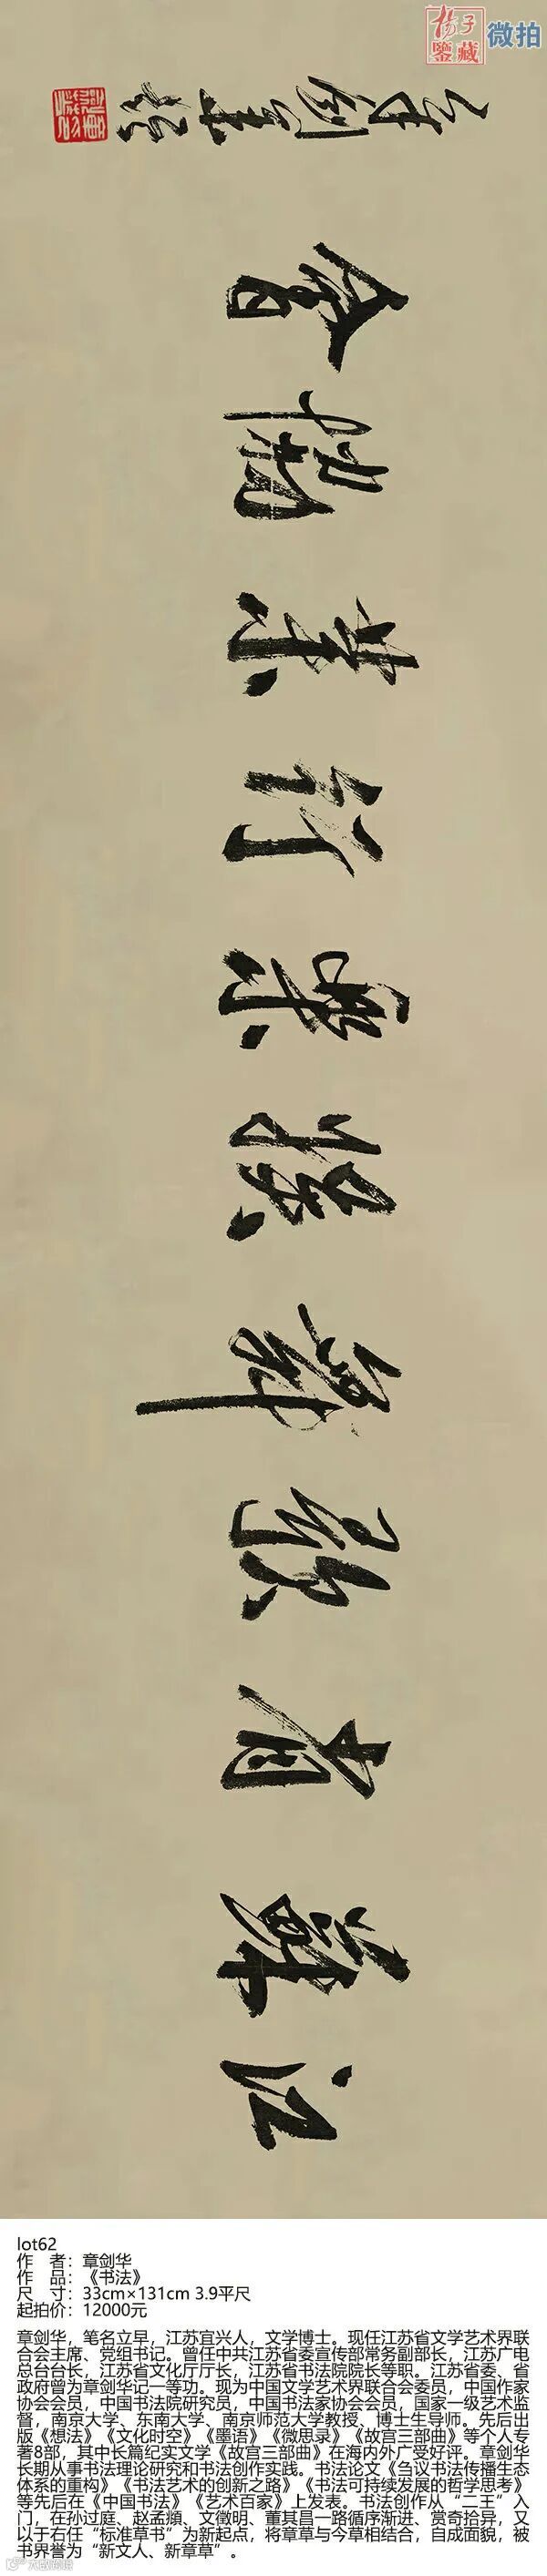 扬子
鑒藏
微拍
江蘇省歌舞娛樂行業協會
章劍華題
lot62
作 者：章剑华
作 品：《书法》
尺 寸：33cm×131cm 3.9平尺
起拍价：12000元
章剑华，笔名立早，江苏宜兴人，文学博士。现任江苏省文学艺术界联
合会主席、党组书记。曾任中共江苏省委宣传部常务副部长，江苏广电
总台台长，江苏省文化厅厅长，江苏省书法院院长等职。江苏省委、省
政府曾为章剑华记一等功。现为中国文学艺术界联合会委员，中国作家
协会会员，中国书法院研究员，中国书法家协会会员，国家一级艺术监
督，南京大学、东南大学、南京师范大学教授、博士生导师。先后出
版《想法》《文化时空》《墨语》《微思录》《故宫三部曲》等个人专
著8部，其中长篇纪实文学《故宫三部曲》在海内外广受好评。章剑华
长期从事书法理论研究和书法创作实践。书法论文《刍议书法传播生态
体系的重构》《书法艺术的创新之路》《书法可持续发展的哲学思考》
等先后在《中国书法》《艺术百家》上发表。书法创作从“二王”入
门，在孙过庭、赵孟頫、文徵明、董其昌一路循序渐进、赏奇拾异，又
以于右任“标准草书”为新起点，将章草与今草相结合，自成面貌，被
书界誉为“新文人、新章草”。